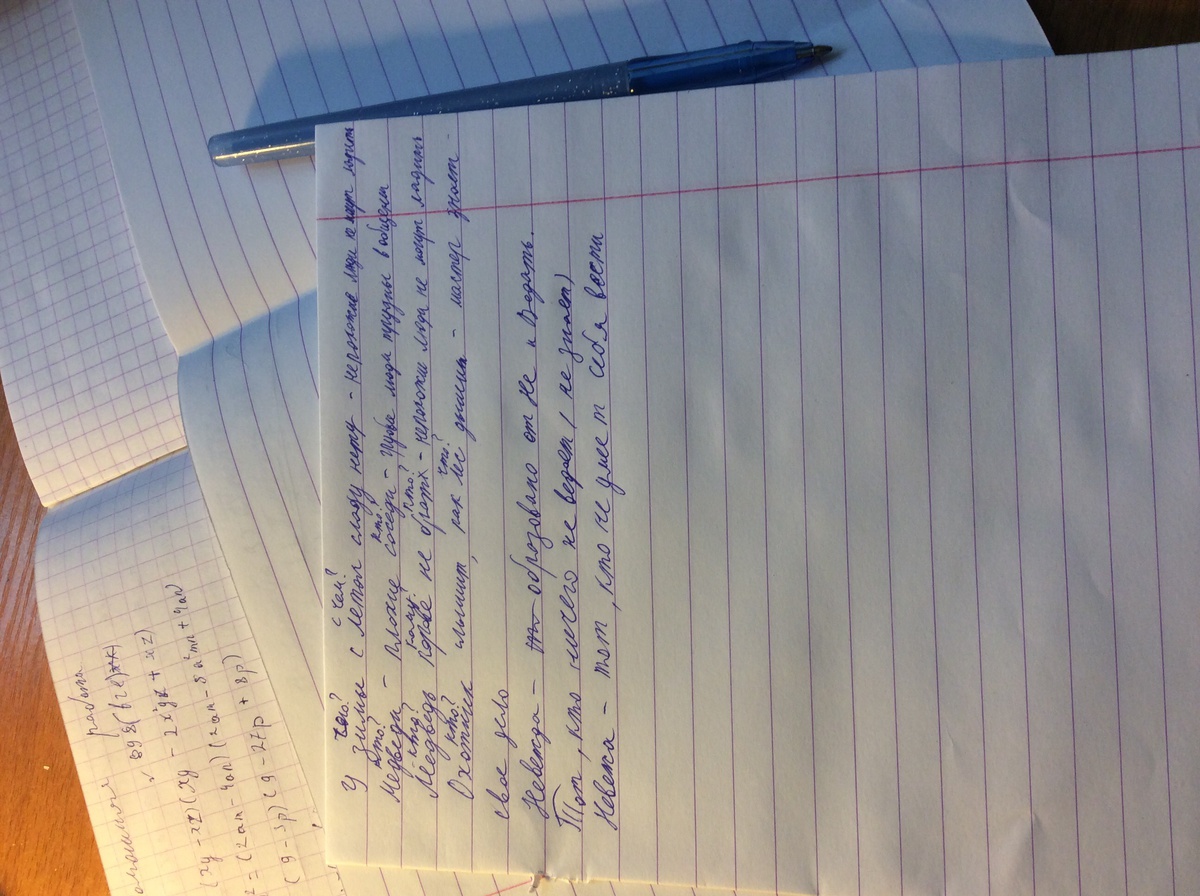 чего? с чем?
У зимы с летом сладу нету - непохожие люди не могут ладить
кто? кто?
Медведи - плохие соседи - Грубые люди трудны в общении
что? кому? кто?
Медведь корове не брат - непохожие люди не могут ладить
кто? что?
Охотник слышит, как лес дышит - мастер знает
свое дело
Невежда - оброзовано от не и Ведать.
Тот, кто ничего не ведает (не знает)
Невежа - тот, кто не умеет себя вести
работа
(xy - xz)(xy - 2x²yz + xz)
= (2an - 4an)(2an - 8a²mn + 4an)
(9 - 3p)(9 - 27p + 3p)